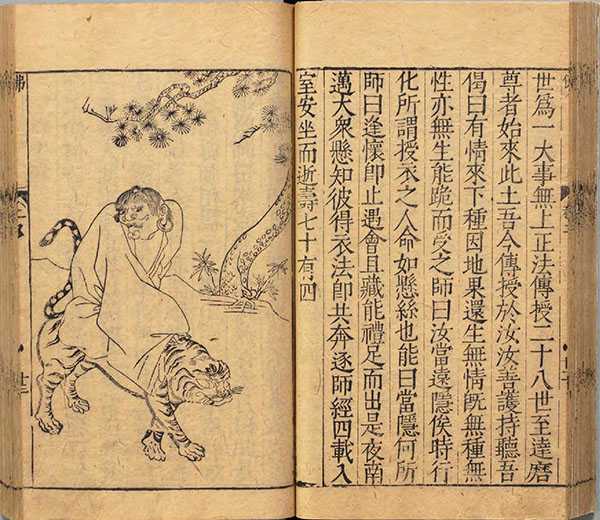 世爲一大事無上正法傳授二十八世至達磨
尊者始來此土吾今傳授於汝汝善護持聽吾
偈曰有情來下種因地果還生無情旣無種無
性亦無生能跪而受之師曰汝當遠隱俟時行
化所謂授衣之人命如懸絲也能曰當隱何所
師曰逢懷卽止遇會且藏能禮足而出是夜南
邁大衆懸知彼得衣法卽共奔逐師經四載入
室安坐而逝壽七十有四
佛